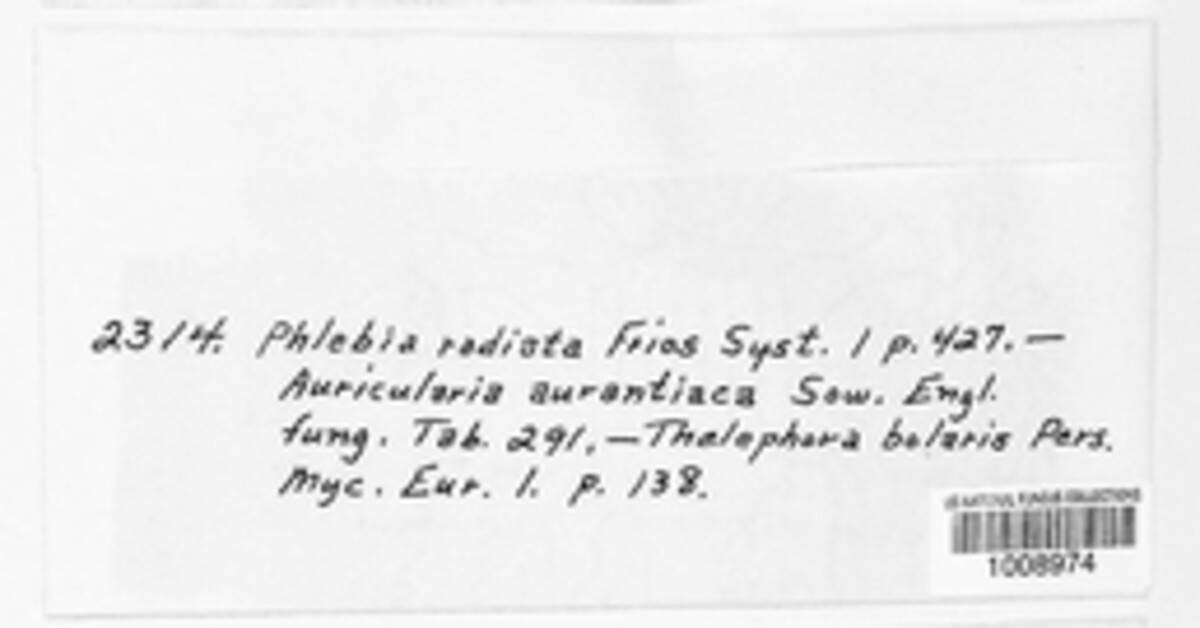 2314. Phlebia radiata Fries Syst. 1 p. 427. —
Auricularia aurantiaca Sow. Engl.
fung. Tab. 291. — Thelephora bolaris Pers.
Myc. Eur. 1. p. 138.
US NATIONAL FUNGUS COLLECTIONS
1008974